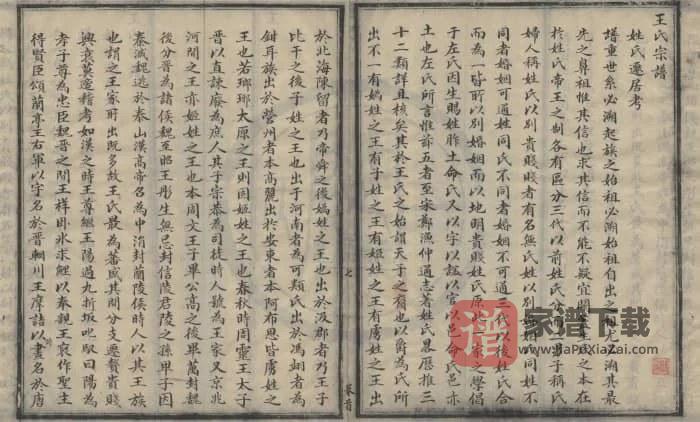 王氏宗譜
姓氏遷居考
譜重世系必溯起族之始祖必溯始祖自出之祖尤必溯其最
先之鼻祖惟其信也求其信而不能不疑宜闕
於姓氏帝王之制各有區分三代以前姓氏分
婦人稱姓氏以別貴賤貴者有名無氏姓以別婚姻同姓不
同者婚姻可通姓同氏不同者婚姻不可通三代以後姓氏合
而為一皆所以別婚姻而以地明貴賤姓氏原
於左氏因生賜姓胙土命氏又以字以諡以官以邑命氏邑亦
土也左氏所言惟茲五者至宋鄭漁仲通志著姓氏畧歷推三
十二類詳且核矣其於王氏之始謂天子之裔也以爵為氏所
出不一有媯姓之王有子姓之王有姬姓之王有虜姓之王出
於北海陳留者乃帝舜之後媯姓之王也出於汲郡者乃王子
比干之後子姓之王也出于河南者為可頻氏出於馮翊者為
鉗耳族出於營州者本高麗出於安東者本阿布思皆虜姓之
王也若瑯琊太原之王則因姬姓之王也春秋時周靈王太子
晉以直諫廢為庶人其子宗恭為司徒時人號為王家又京兆
河間之王亦姬姓之王也本周文王子畢公高之後畢萬封魏
後分晉為諸侯魏至昭王彤生無忌封信陵君陵之孫卑子因
秦滅魏逃於泰山漢高帝召為中涓封蘭陵侯時人以其王族
也謂之王家所出既多故王氏最為蕃盛其間分支遷
興衰莫遑稽考如漢之時王尊繼王陽過九折坂叱馭曰陽為
孝子尊為忠臣魏晉之間王祥臥氷求鯉以奉親王裒作聖主
得賢臣頌蘭亭王右軍以字名於晉輞川王摩詰以畫名於唐
七
卷首
譜
家譜下载
JiaPuXiaZai.com